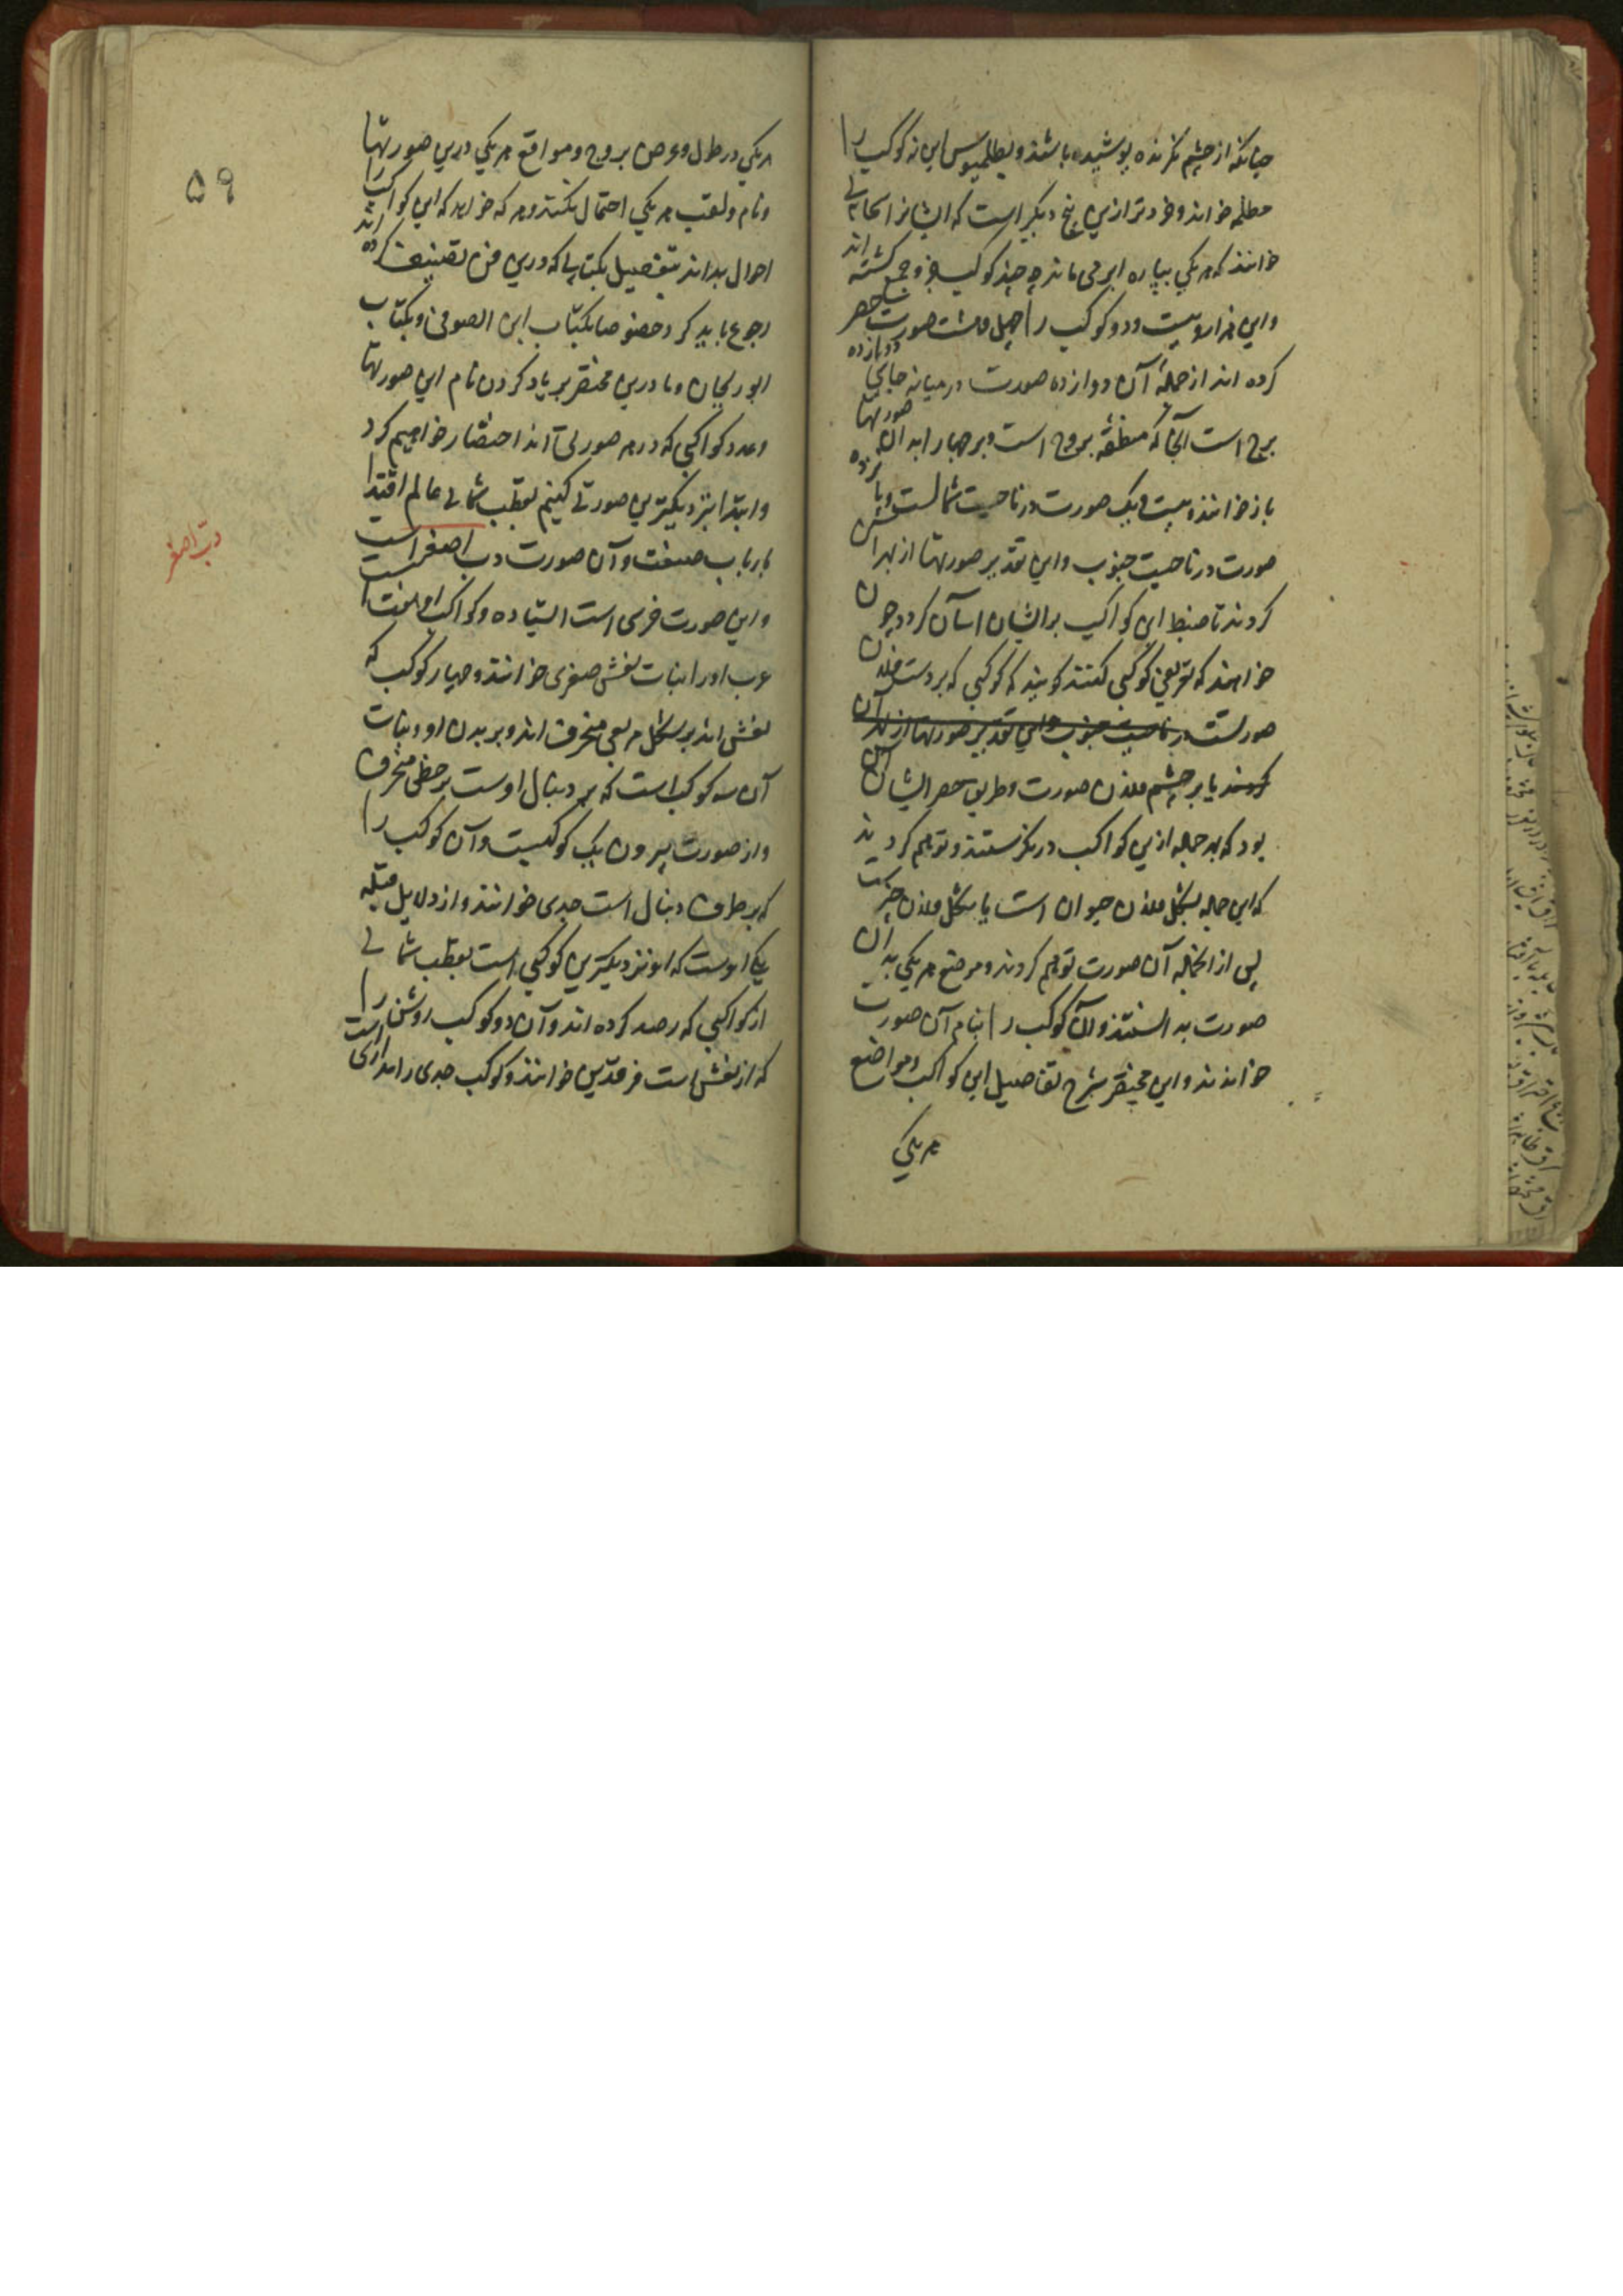 چنانکه از چشم نگرنده پوشیده باشند و بطلمیوس این نه کوکب را
مظلمه خوانند و خردتر ازین پنج دیگر است که ایشانرا سحابی
خوانند که هر یکی بپاره ابر می ماند چه چند کوکب خرد جمع گشته اند
و این هزار و بیست و دو کوکب را بچهل و هشت صورت حصر
کرده اند از جملهٔ آن دوازده صورت در میانه جای دوازده
برج است آنجا که منطقه بروج است و بروجها را بدان صورتها
باز خوانند و بیست و یک صورت در ناحیت شمالست و پانزده
صورت در ناحیت جنوب و این تقدیر صورتها از بهر آن
کردند تا ضبط این کواکب بر ایشان آسان گردد چون
خواهند که تعریف کوکبی کنند گویند که کوکبی که بر دست فلان
صورتست در ناحیت جنوب و این تقدیر صورتها از بهر آن
کنند یا بر چشم فلان صورت و طریق حصر ایشان آن
بود که بهر جمله ازین کواکب در نگرستند و توهم کردند
که این جمله بشکل فلان حیوان است یا بشکل فلان چیز
پس از آنجمله آن صورت توهم کردند و موضع هر یکی بدان
صورت بدانستند و آن کوکب را بنام آن صورت
خواندند و این مختصر شرح تفاصیل این کواکب و مواضع
هر یکی
۵۹
هر یکی در طول و عرض بروج و مواقع هر یکی درین صورتها
و نام و لقب هر یکی احتمال نکند و هر که خواهد که این کواکب را
احوال بداند بتفصیل بکتابها که درین فن تصنیف کرده اند
رجوع باید کرد خصوصا بکتاب ابن الصوفی و بکتاب
ابوریحان و ما درین مختصر بر یاد کردن نام این صورتها
و عدد کواکبی که در هر صورتی اند اختصار خواهیم کرد
و ابتدا بنزدیکترین صورتی کنیم بقطب شمالی عالم اقتدا
بارباب صنعت و آن صورت دب اصغر است
دب اصغر
و این صورت خرسی است ایستاده و کواکب او هفت است
عرب او را بنات نعش صغری خوانند و چهار کوکب که
نعش اند بر شکل مربعی منحرف اند و بر بدن او و بنات
آن سه کوکب است که بر دنبال اوست بر خطی منحرف
و از صورت بیرون یک کوکبست و آن کوکب را
که بر طرف دنبال است جدی خوانند و از دلایل قبله
یکی اوست که او نزدیکترین کوکبی است بقطب شمالی
از کواکبی که رصد کرده اند و آن دو کوکب روشن را
که از نعش است فرقدین خوانند و کوکب جدی را